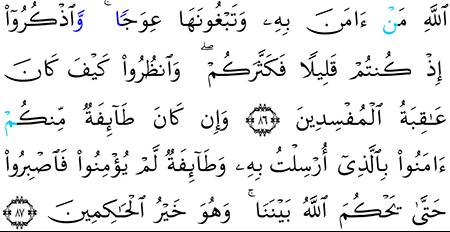 ٱللَّهِ مَنْ ءَامَنَ بِهِۦ وَتَبْغُونَهَا عِوَجًاۚ وَٱذْكُرُوٓا۟
إِذْ كُنتُمْ قَلِيلًا فَكَثَّرَكُمْۖ وَٱنظُرُوا۟ كَيْفَ كَانَ
عَـٰقِبَةُ ٱلْمُفْسِدِينَ ٨٦ وَإِن كَانَ طَآئِفَةٌ مِّنكُمْ
ءَامَنُوا۟ بِٱلَّذِىٓ أُرْسِلْتُ بِهِۦ وَطَآئِفَةٌ لَّمْ يُؤْمِنُوا۟ فَٱصْبِرُوا۟
حَتَّىٰ يَحْكُمَ ٱللَّهُ بَيْنَنَاۚ وَهُوَ خَيْرُ ٱلْحَـٰكِمِينَ ٨٧